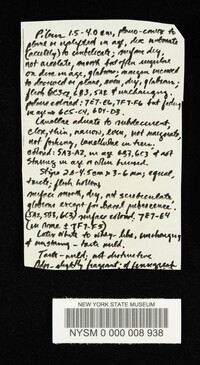 Pileus 1.5-4.0 cm, plano-convex to
plane or uplifted in age, disc umbonate
(acutely) to umbilicate; surface dry,
not areolate, smooth but often rugulose
on disc in age, glabrous; margin incurved
to decurved or plane, even, dry, glabrous;
flesh 6C3, 6B3, 5B2 & unchanging;
colored: 7E7-E6, 7F7-F6 but fading
in age → 6C5-C4, 6D4-D3.
Lamellae adnate to subdecurrent
close, thin, narrow, even, not marginate,
not forking, lamellulae in tiers.
colored: 5A3-A2, in age 6B3, 6C3 & not
staining in age or when bruised.
Stipe 2.0-4.5 cm x 3-6 mm; equal,
terete; flesh hollow,
surface smooth, dry, not scrobiculate
glabrous except for basal pubescence.
(5A3, 5B3, 6C3) surface colored 7E7-E4
(in some ± 7F7-F5)
Latex white to whey-like, unchanging
& unstaining - taste mild.
Taste - mild; not distinctive
Odor - slightly fragrant; of fenugreek
NEW YORK STATE MUSEUM
NYSM 0 000 008 938